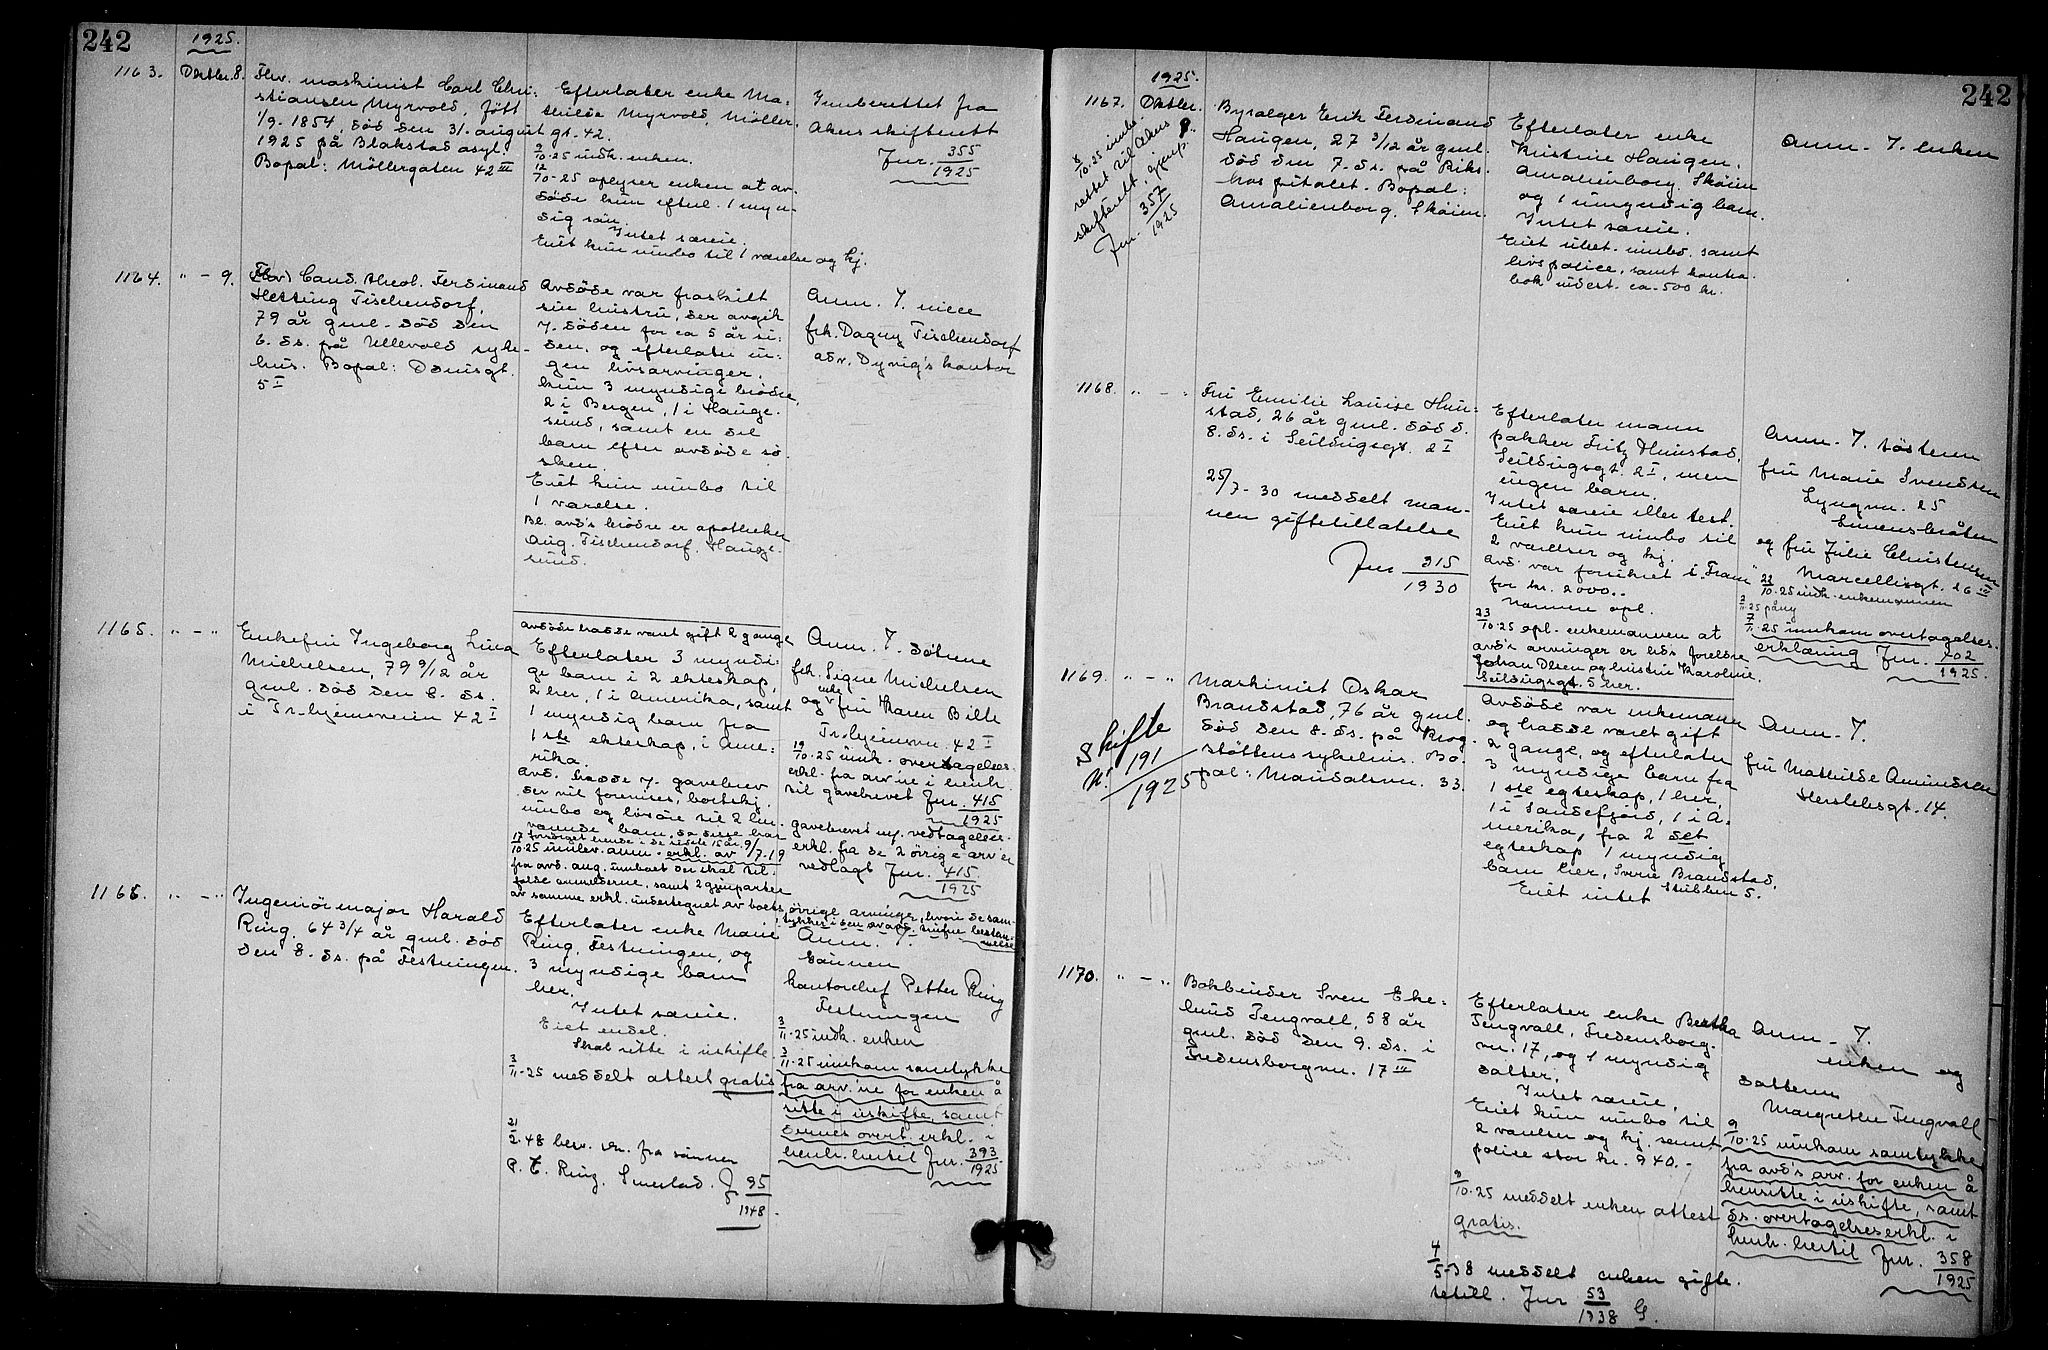 242
1925.
1163.
Oktbr. 8.
Fhv. maskinist Carl Chri-
stiansen Myrvold, født
1/9-1854, död den 31. august
1925 på Blakstad asyl.
Bopal: Möllergaten 42 III
Efterlater enke Ma-
thilde Myrvold, Möller-
gt. 42.
9/10-25 indk. enken.
12/10-25 oplyser enken at av-
döde kun efterl. 1 myn-
dig sön.
Intet særeie.
Eiet kun innbo til 1 værelse og kj.
Innberettet fra
Akers skifterett
Jnr. 355/1925
1164.
" - 9.
(Fhv) Cand. theol. Ferdinand
Hetting Tischendorf,
79 år gml. död den
6. ds. på Ullevold syke-
hus. Bopal: Daasgt.
5 I
Avdöde var fraskilt
sin hustru, der avgik
v. döden for ca 5 år si-
den, og efterlater in-
gen livsarvinger,
kun 3 myndige brödre,
2 i Bergen, 1 i Hauge-
sund, samt en del
barn efter avdöde sö-
sken.
Eiet kun innbo til
1 værelse.
Bl. avd's brödre er apotheker
Aug. Tischendorf, Hauge-
sund.
Anm. v. niece
frk. Dagny Tischendorf
adv. Dyvig's kontor
1165.
" - "
Enkefru Ingeborg Lina
Michelsen, 79 9/12 år
gml. död den 8. ds.
i Tr.hjemsveien 42 I
Avdöde hadde vært gift 2 gange
Efterlater 3 myndi-
ge barn i 2 ekteskap,
2 her, 1 i Amerika, samt
1 myndig barn fra
1ste ekteskap, i Ame-
rika.
Avd. hadde v. gavebrev
der til foreines, bortskj.
innbo og lösöre til 2 hju-
værende barn, da disse har
forsörget hende i de sidste 15 år. 9/7-19
17/10-25 innlev. anm. erkl. av
fra avd. ang. innboet der skal til-
falde anmelderne, samt 2 gjenparter
av samme erkl. undertegnet av bocts övrige arvinger, hvori de sam-
tykker i den avdödes trufne bestem-
melse
Anm. v. dötrene
frk. Signe Michelsen
og enkefru Karen Bille
Tr.hjemsvn. 42 I
19/10-25 innk. overtagelses-
erkl. fra arv'ne i henh.
til gavebrevet Jnr. 415/1925
gavebrevet og vedtagelses-
erkl. fra de 2 övrige arv'er
vedlagt Jnr. 415/1925
1166.
" - "
Ingeniör major Harald
Ring, 64 3/4 år gml. död
den 8. ds. på Festningen.
Efterlater enke Marie
Ring, Festningen, og
3 myndige barn
her.
Intet særeie.
Eiet endel.
Skal sitte i uskifte.
3/11-25 meddelt attest gratis
21/2-48 besv. skr. fra sönnen
P. C. Ring, Smestad. J 95/1948
Anm. v.
Sönnen
kontorchef Petter Ring
Festningen
3/11-25 indk. enken
3/11-25 innkom samtykke
fra arv'ne for enken å
sitte i uskifte, samt
dennes overt. erkl. i
henh. hertil Jnr. 393/1925
242
1925.
1167.
Oktbr.
9.
8/10-25 innbe-
rettet til Akers
skifterett, gjenp.
Jnr. 357/1925
Byselger Erik Ferdinand
Haugen, 27 3/12 år gml.
död den 7. ds. på Riks-
hospitalet. Bopal:
Amalienborg, Sköien.
Efterlater enke
Kristine Haugen,
Amalienborg, Sköien
og 1 umyndig barn.
Intet særeie.
Eiet ubet. innbo, samt
livspolice, samt kontra-
bok utvist. ca. 500 kr.
Anm. v. enken
1168.
" - "
Fru Emilie Louise Hun-
stad, 26 år gml. död d.
8. ds. i Seildugsgt. 2 I
25/7-30 meddelt man-
nen giftetillatelse
Jnr 315/1930
Efterlater mann
pakker Fritz Hunstad,
Seildugsgt. 2 I, men
ingen barn.
Intet særeie eller test.
Eiet kun innbo til
2 værelser og kj.
Avd. var forsikret i "Fram"
for kr. 2000.-
Mannen opl.
23/10-25 opl. enkemannen at
avd's arvinger er hds foreldre
Johan Olsen og hustru Karoline,
Seildugsgt. 5 her.
Anm. v. söstrene
fru Marie Svendsen
Lyngvn. 25
Simensbråten
og fru Julie Christensen
Marcellisgt. 16 III
22/10-25 indk. enkemannen
2/11-25 påny
7/11-25 innkom overtagelses-
erklæring Jnr. 402/1925
1169.
" - "
Skifte
N: 191/1925
Maskinist Oskar
Brandstad, 76 år gml.
död den 8. ds. på Krog-
stöttens sykehus. Bo-
pal: Maridalsvn. 33.
Avdöde var enkemann
og hadde været gift
2 gange, og efterlater
3 myndige barn fra
1ste egteskap, 1 her,
1 i Sandefjord, 1 i A-
merika, fra 2det
egteskap 1 myndig
barn her, Sverre Brandstad,
Stubben 5.
Eiet intet
Anm. v.
fru Mathilde Amundsen
Herslebsgt. 14.
1170.
" - "
Bokbinder Sven Eke-
lund Tengvall, 58 år
gml. död den 9. ds. i
Fredensborgvn. 17 III
Efterlater enke Bertha
Tengvall, Fredensborg-
vn. 17, og 1 myndig
datter.
Intet særeie.
Eiet kun innbo til
2 værelser og kj. samt
police stor kr. 940.-
9/10-25 meddelt enken attest
gratis.
4/5-38 meddelt enken gifte-
tetill. Jnr 53/1938 G.
Anm. v.
enken og
datteren
Margrethe Tengvall
9/10-25 innkom samtykke
fra avd's arv. for enken å
hensitte i uskifte, samt
ds. overtagelseserkl. i
henh. hertil Jnr. 358/1925